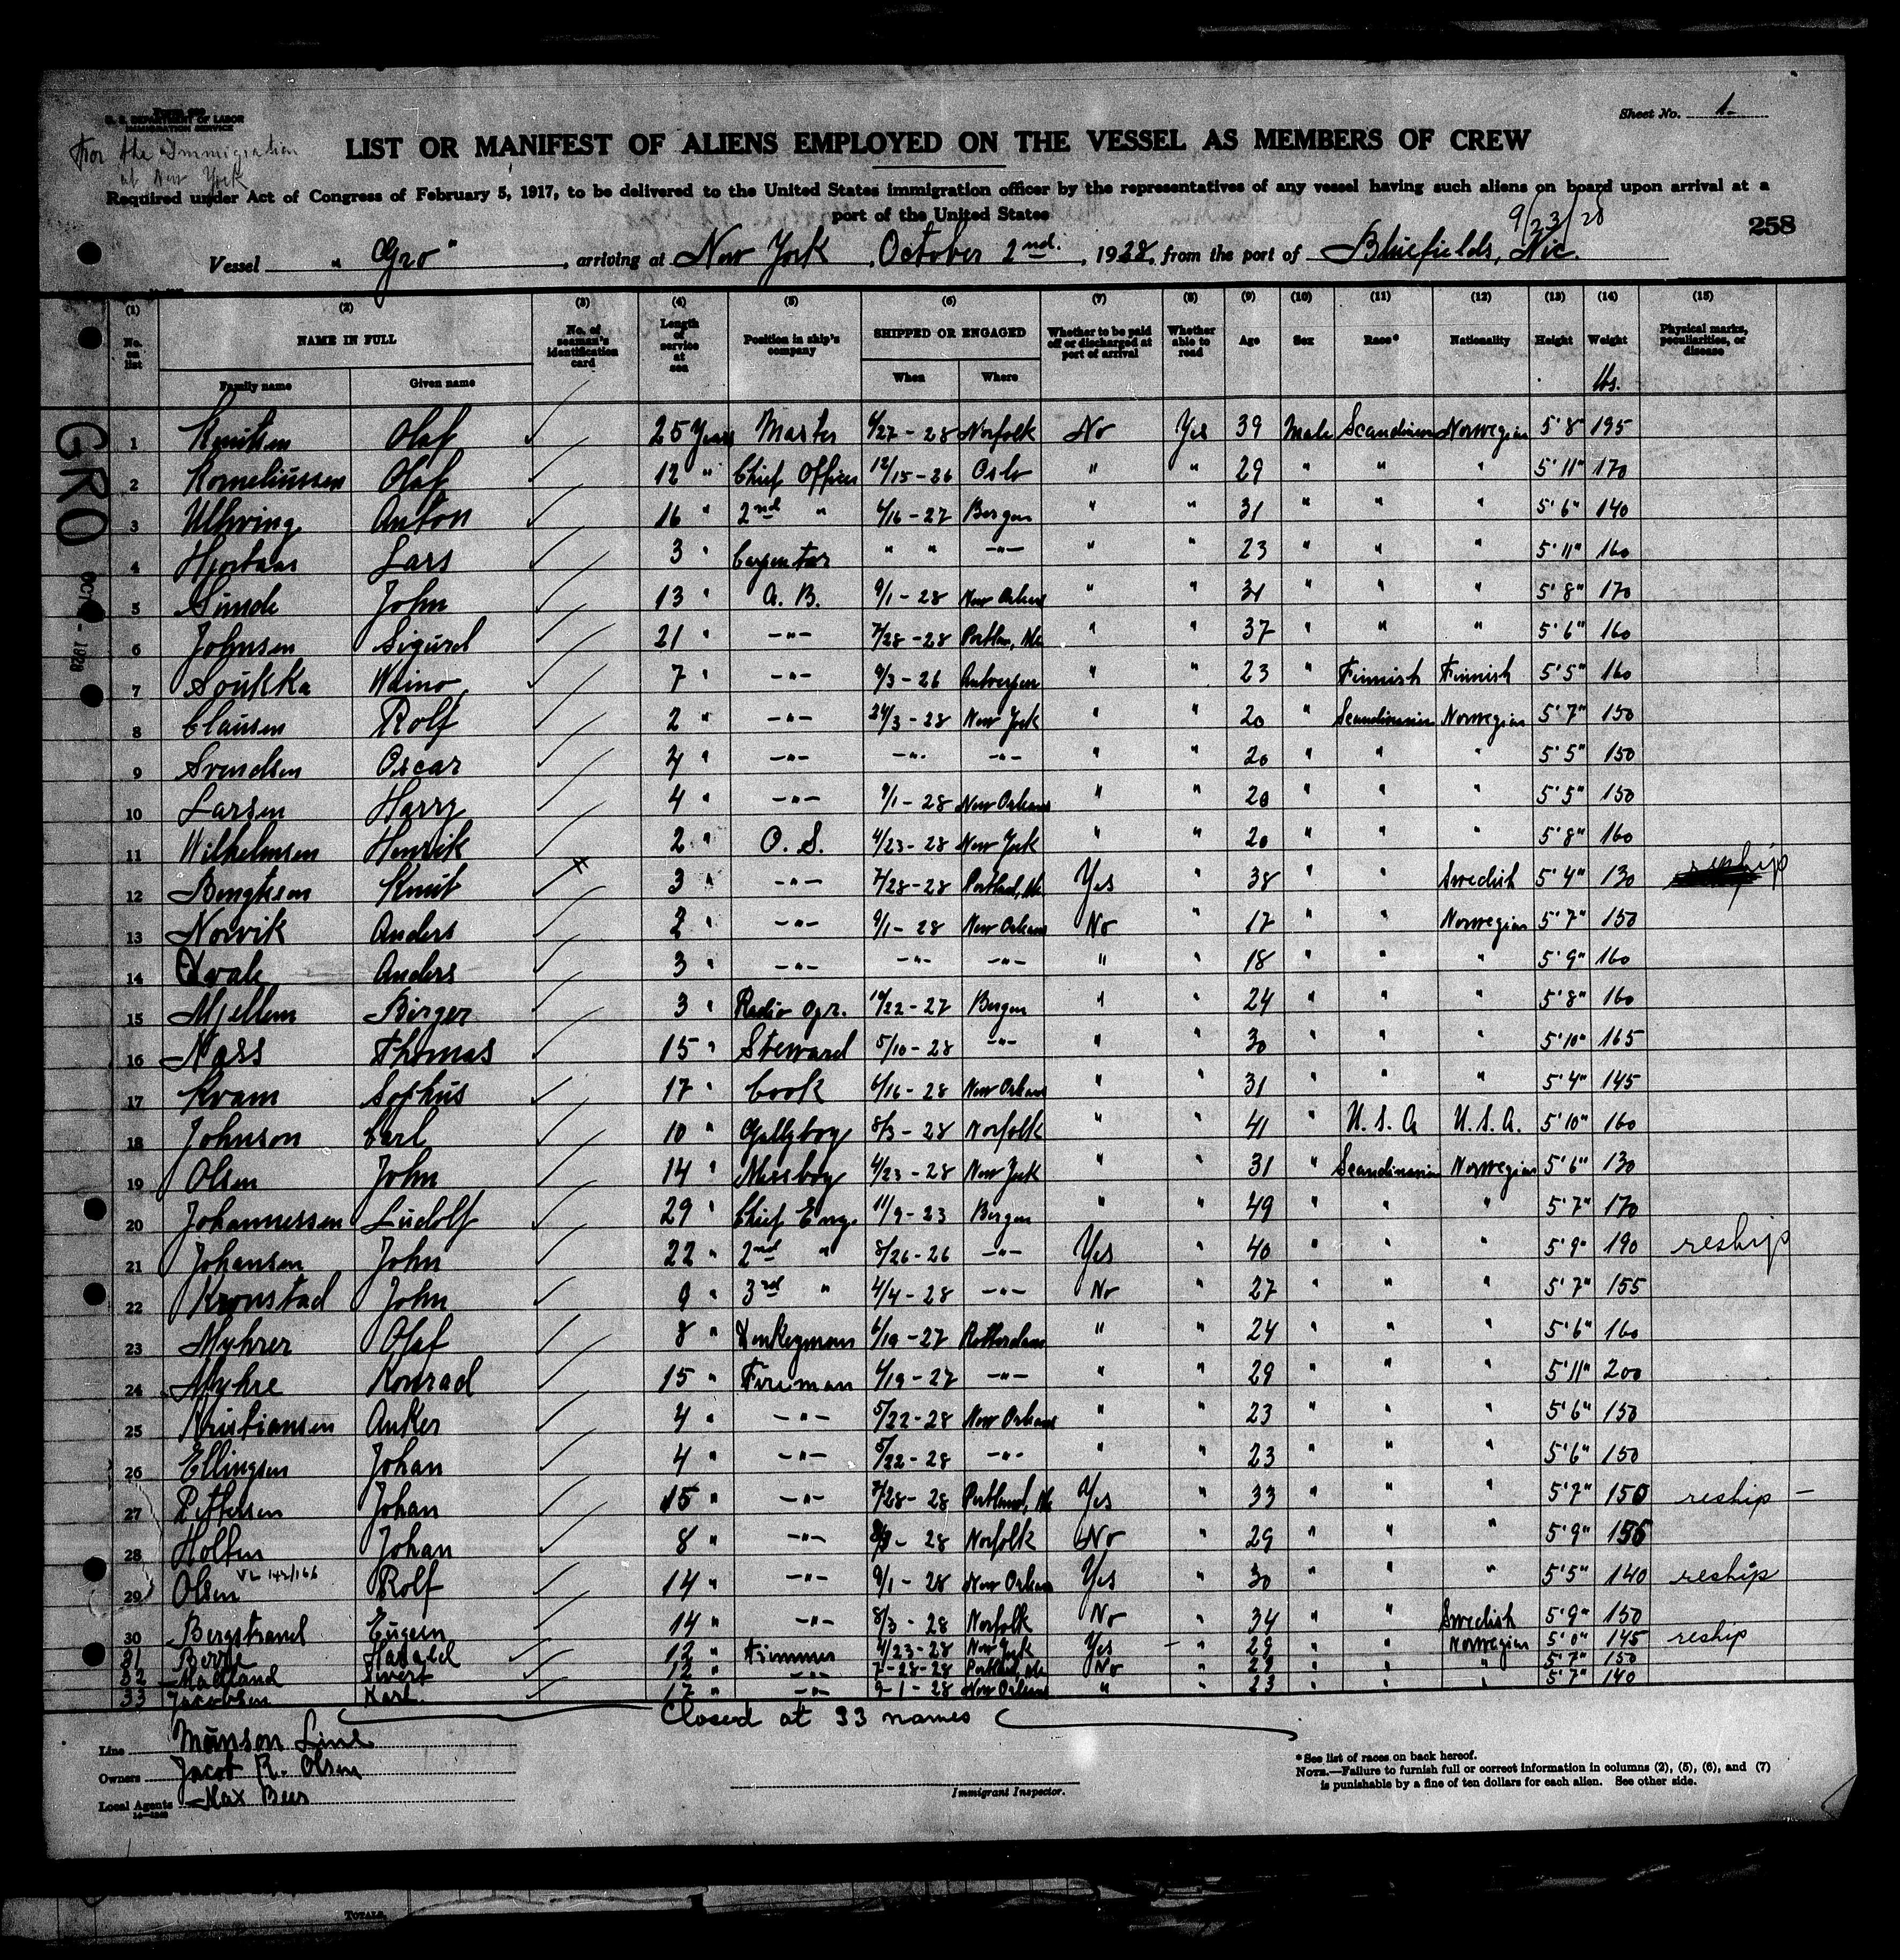 Sheet No. 1.
Form 680
U. S. DEPARTMENT OF LABOR
IMMIGRATION SERVICE
For the Immigration
at New York
LIST OR MANIFEST OF ALIENS EMPLOYED ON THE VESSEL AS MEMBERS OF CREW
Required under Act of Congress of February 5, 1917, to be delivered to the United States immigration officer by the representatives of any vessel having such aliens on board upon arrival at a
port of the United States
9/23/28
258
Vessel "Gro", arriving at New York, October 2nd, 1928, from the port of Bluefields, Nic.
(1) (2) (3) (4) (5) (6) (7) (8) (9) (10) (11) (12) (13) (14) (15)
No. on list NAME IN FULL No. of seaman's identification card Length of service at sea Position in ship's company SHIPPED OR ENGAGED Whether to be paid off or discharged at port of arrival Whether able to read Age Sex Race* Nationality Height Weight Physical marks, peculiarities, or disease
Family name Given name When Where lbs.
GRO
OCT - 1928
1 Knutsen Olaf 25 Years Master 6/27-28 Norfolk No Yes 39 Male Scandinavian Norwegian 5'8" 195
2 Korneliussen Olaf 12 " Chief Officer 12/15-26 Oslo " " 29 " " " 5'11" 170
3 Uthring Anton 16 " 2nd " 6/16-27 Bergen " " 31 " " " 5'6" 140
4 Lars 3 " Carpenter " " -"- " " 23 " " " 5'11" 160
5 Sunde John 13 " A. B. 9/1-28 New Orleans " " 31 " " " 5'8" 170
6 Johnsen Sigurd 21 " -"- 7/28-28 Portland, Me " " 37 " " " 5'6" 160
7 Soukka Waino 7 " -"- 9/3-26 Antwerpen " " 23 " Finnish Finnish 5'5" 160
8 Clausen Rolf 2 " -"- 24/3-28 New York " " 20 " Scandinavian Norwegian 5'7" 150
9 Svendsen Oscar 4 " -"- -"- -"- " " 20 " " " 5'5" 150
10 Larsen Harry 4 " -"- 9/1-28 New Orleans " " 20 " " " 5'5" 150
11 Wilhelmsen Henrik 2 " O. S. 4/23-28 New York " " 20 " " " 5'8" 160
12 Bengtsson Knut 3 " -"- 7/28-28 Portland, Me Yes " 38 " " Swedish 5'4" 130 reship
13 Norvik Anders 2 " -"- 9/1-28 New Orleans No " 17 " " Norwegian 5'7" 150
14 Kvale Anders 3 " -"- -"- -"- " " 18 " " " 5'9" 160
15 Mjellem Birger 3 " Radio opr. 10/22-27 Bergen " " 24 " " " 5'8" 160
16 Nass Thomas 15 " Steward 5/10-28 -"- " " 30 " " " 5'10" 165
17 Kvam Sophus 17 " Cook 6/16-28 New Orleans " " 31 " " " 5'4" 145
18 Johnson Carl 10 " Gallyboy 8/3-28 Norfolk " " 41 " U. S. A U. S. A. 5'10" 160
19 Olsen John 14 " Messboy 4/23-28 New York " " 31 " Scandinavian Norwegian 5'6" 130
20 Johannessen Ludolf 29 " Chief Eng. 11/9-23 Bergen " " 49 " " " 5'7" 170
21 Johansen John 22 " 2nd " 8/26-26 -"- Yes " 40 " " " 5'9" 190 reship
22 Kronstad John 9 " 3rd " 4/4-28 -"- No " 27 " " " 5'7" 155
23 Myhrer Olaf 8 " Donkeyman 6/19-27 Rotterdam " " 24 " " " 5'6" 160
24 Myhre Konrad 15 " Fireman 6/19-27 -"- " " 29 " " " 5'11" 200
25 Kristiansen Anker 4 " -"- 5/22-28 New Orleans " " 23 " " " 5'6" 150
26 Ellingsen Johan 4 " -"- 5/22-28 -"- " " 23 " " " 5'6" 150
27 Pettersen Johan 15 " -"- 7/28-28 Portland, Me Yes " 33 " " " 5'7" 150 reship -
28 Holten Johan 8 " -"- 8/3-28 Norfolk No " 29 " " " 5'9" 155
VL 142/166
29 Olsen Rolf 14 " -"- 9/1-28 New Orleans Yes " 30 " " " 5'5" 140 reship
30 Bergstrand Eugen 14 " -"- 8/3-28 Norfolk No " 34 " " Swedish 5'9" 150
31 Harald 12 " Trimmer 4/23-28 New York Yes - " 29 " " Norwegian 5'0" 145 reship
32 Madland Sivert 12 " -"- 7-28-28 Portland, Me No " 29 " " " 5'7" 150
33 Jacobsen Karl 17 " -"- 9-1-28 New Orleans " " 23 " " " 5'7" 140
Closed at 33 names
Line Munson Line
Owners Jacob R. Olsen
Local Agents Max Bees
Immigrant Inspector.
*See list of races on back hereof.
NOTE.—Failure to furnish full or correct information in columns (2), (5), (6), and (7)
is punishable by a fine of ten dollars for each alien. See other side.
TOTALS